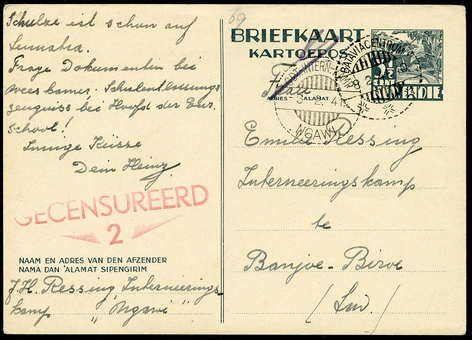 Schulze ist schon auf
Sumatra.
Frage Dokumenten bei
Weeskamer. Schulentlassungs
zeugniss bei Hoofd der Eur.
School!
Innige Küsse
Dein Heinz
GECENSUREERD
2
NAAM EN ADRES VAN DEN AFZENDER
NAMA DAN 'ALAMAT SIPENGIRIM
J.H. Ressing Interneerings
kamp "Ngawi"
69
BRIEFKAART
KARTOEPOS
ADRES ALAMAT
BATAVIACENTRUM
NGAWI
Frau
Emilie Ressing
Interneeringskamp
te
Banjoe-Biroe